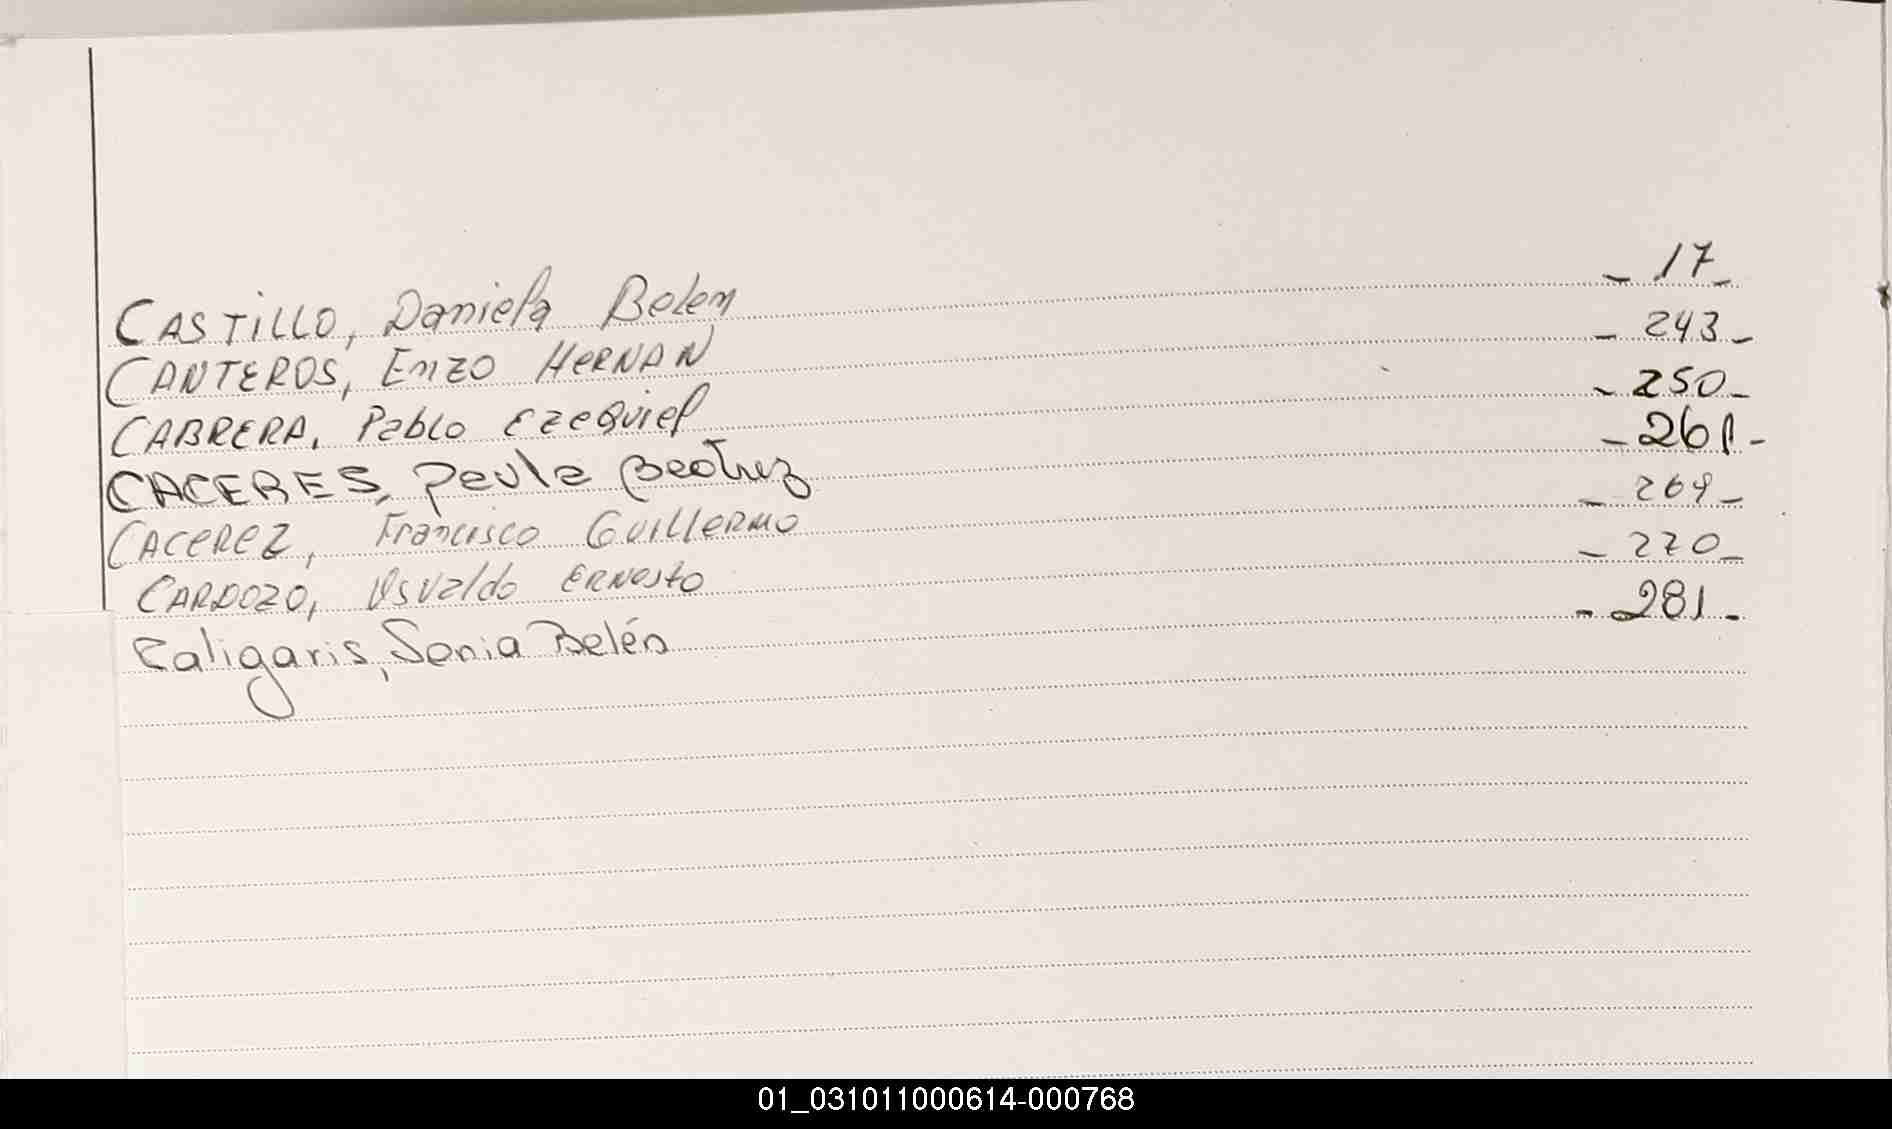 CASTILLO, Daniela Belen - 17 -
CANTEROS, Enzo HERNAN - 243 -
CABRERA, Pablo Ezequiel - 250 -
CACERES, Paula Beatriz - 261 -
CACEREZ, Francisco Guillermo - 269 -
CARDOZO, Osvaldo Ernesto - 270 -
Caligaris, Sonia Belén - 281 -
01_031011000614-000768